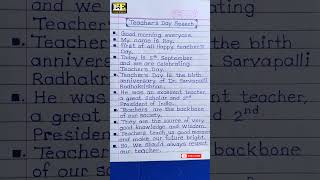 EE
Teacher's Day Speech
Good morning everyone.
My name is Roy.
First of all Happy teacher's
Day.
Today is 5th September
and we are celebrating
Teacher's Day.
Teacher's Day is the birth
anniversary of Dr. Sarvapalli
Radhakrishnan.
He was an excellent teacher,
a great scholar and 2nd
President of India.
Teachers are the backbone
of our society.
They are the source of very
good knowledge and wisdom.
Teachers teach us good manners
and make our future bright.
So, We should always respect
our teacher.